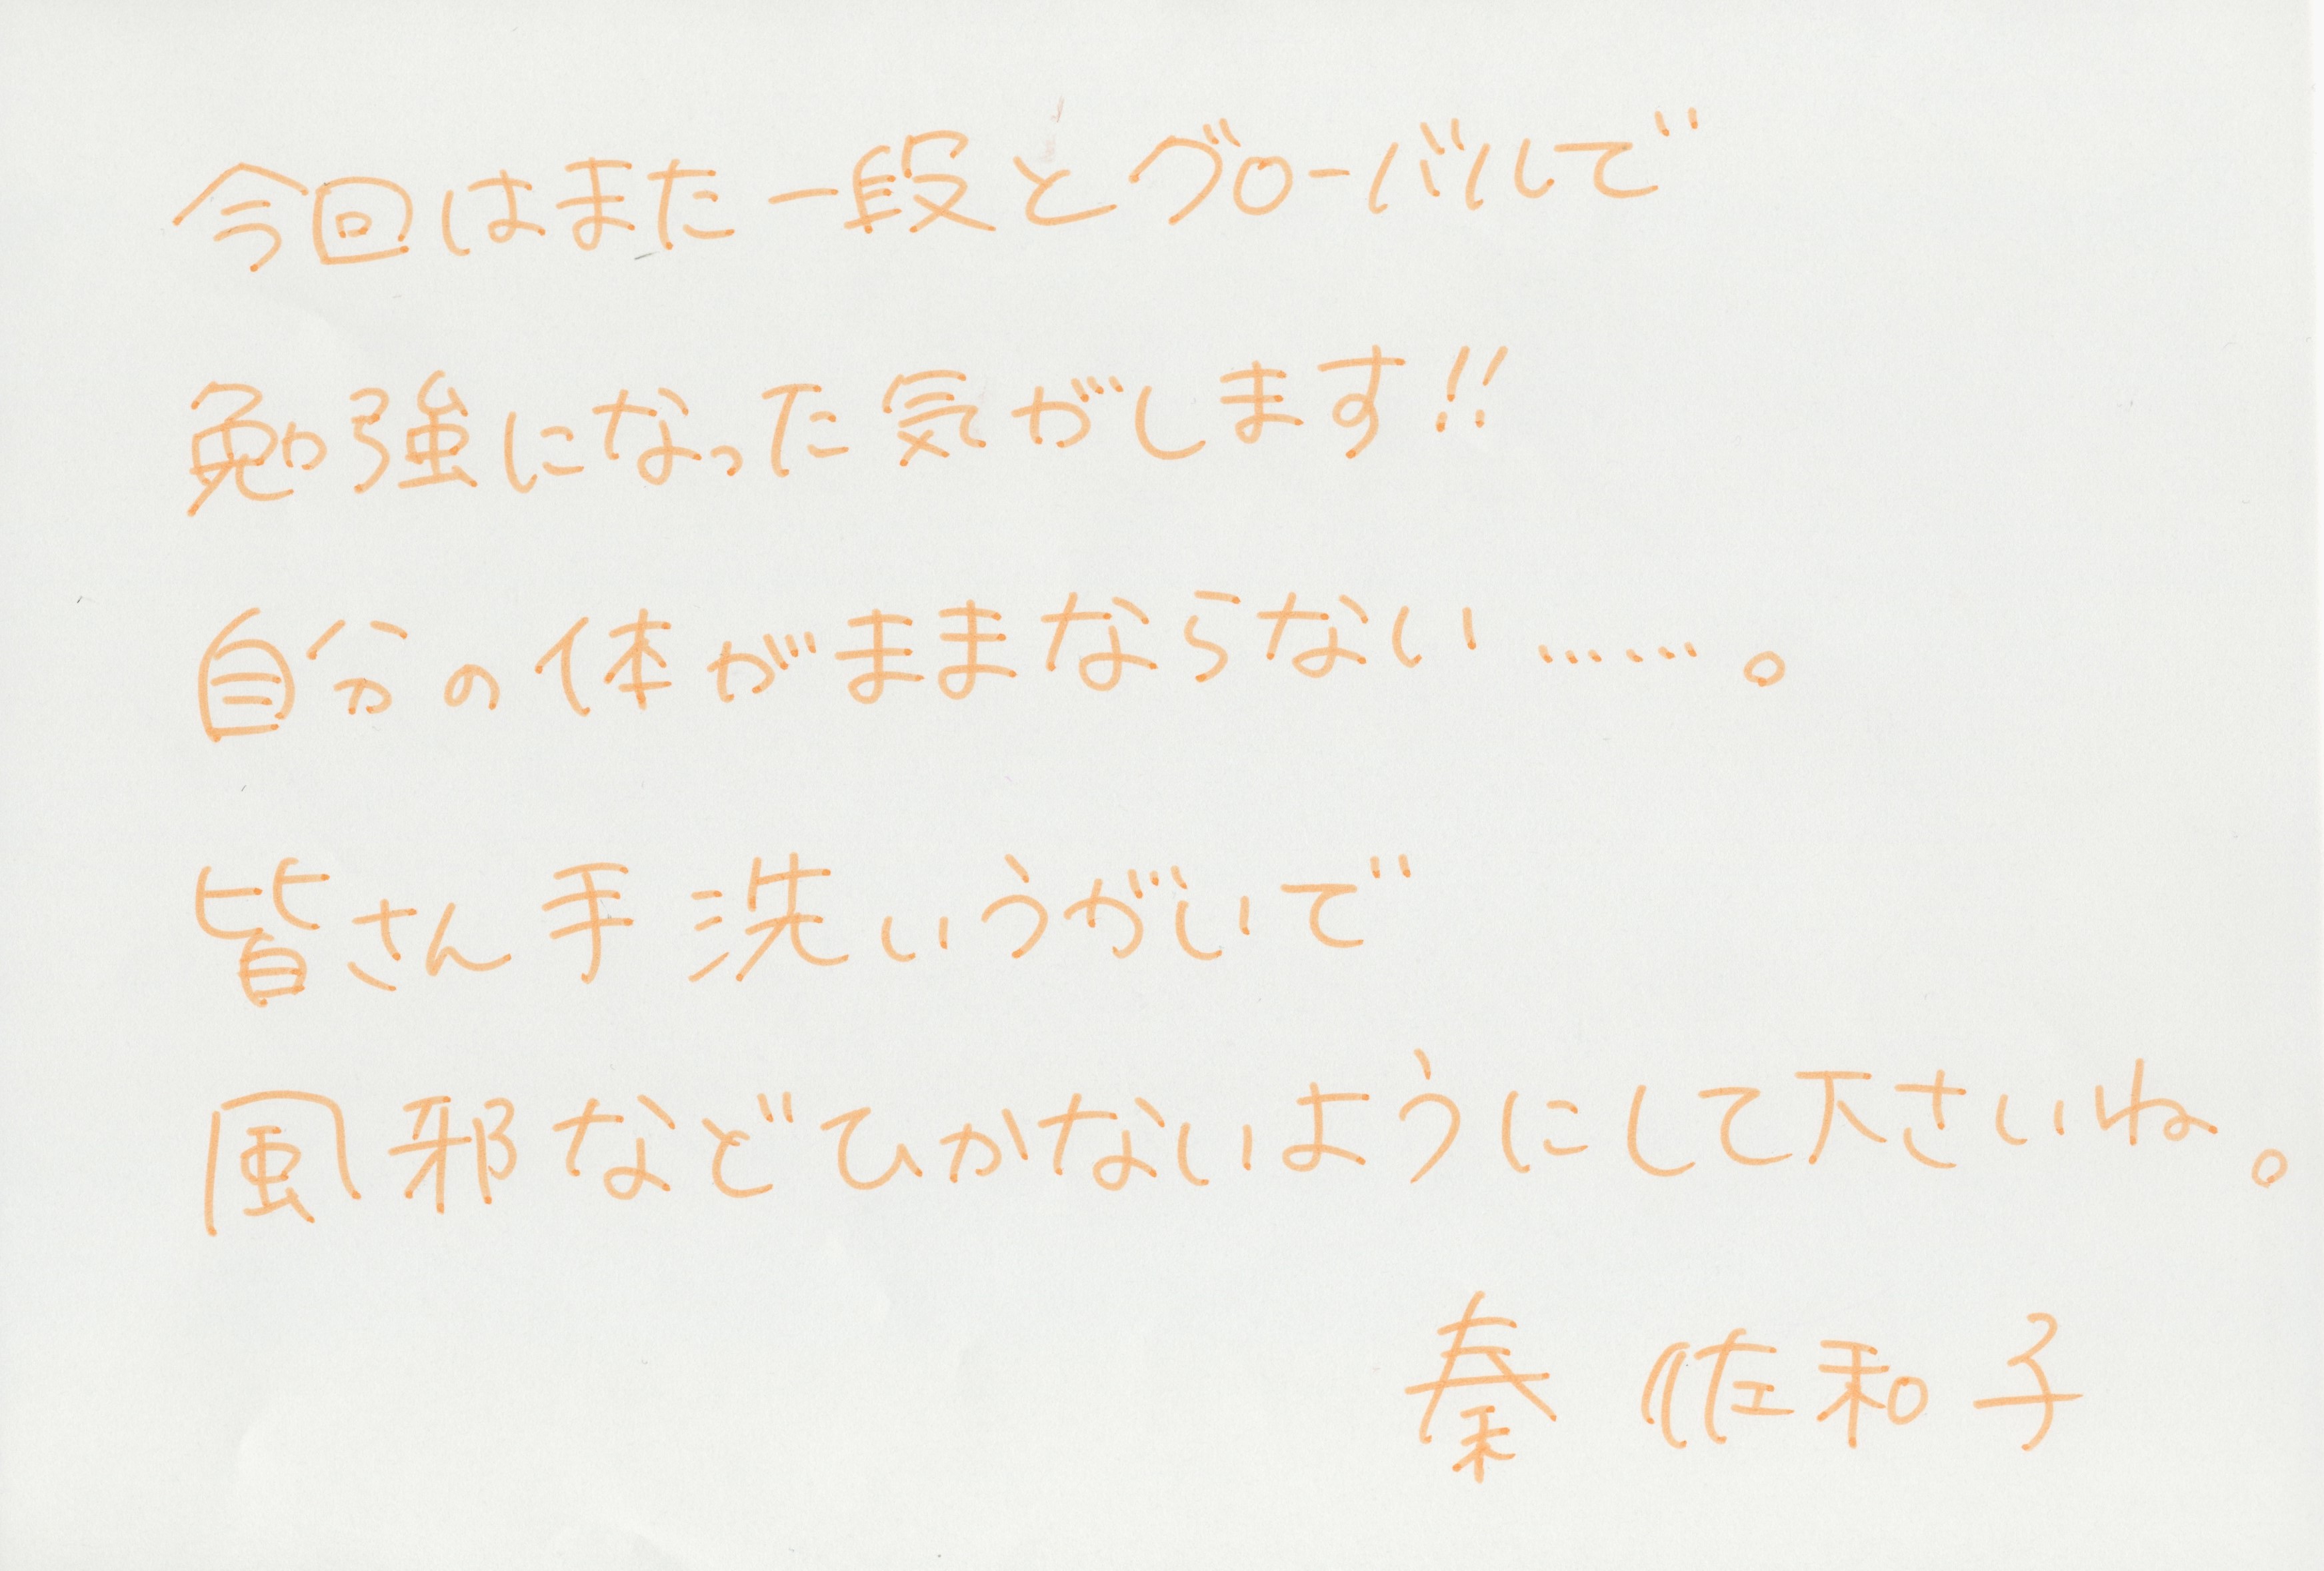 今回はまた一段とグローバルで
勉強になった気がします!!
自分の体がままならない……。
皆さん手洗いうがいで
風邪などひかないようにして下さいね。
秦 佐和子